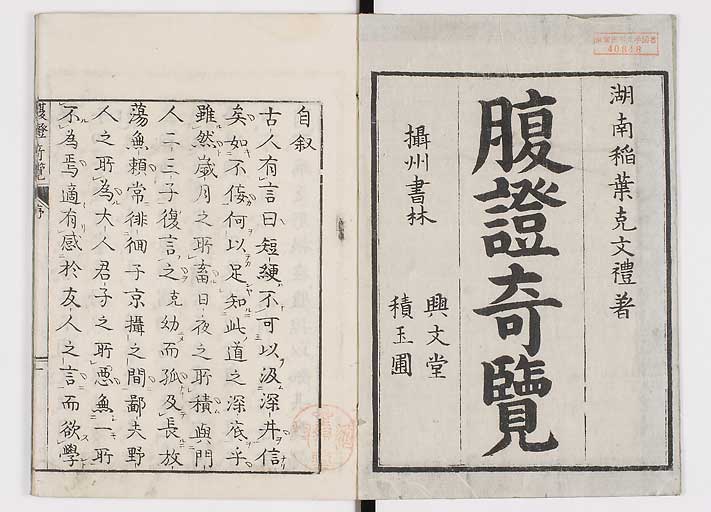 湖南稲葉克文禮著
腹證奇覽
攝州書林
興文堂
積玉圃
40818
自叙
古人有言曰短綆不可以汲深井信
矣如不侫何以足知此道之深底乎
雖然歳月之所畜日夜之所積與門
人二三子復言之克幼而孤及長放
蕩無頼常徘徊于京攝之間鄙夫野
人之所為大人君子之所悪無一所
不為焉適有感於友人之言而欲學
腹證奇覽
序